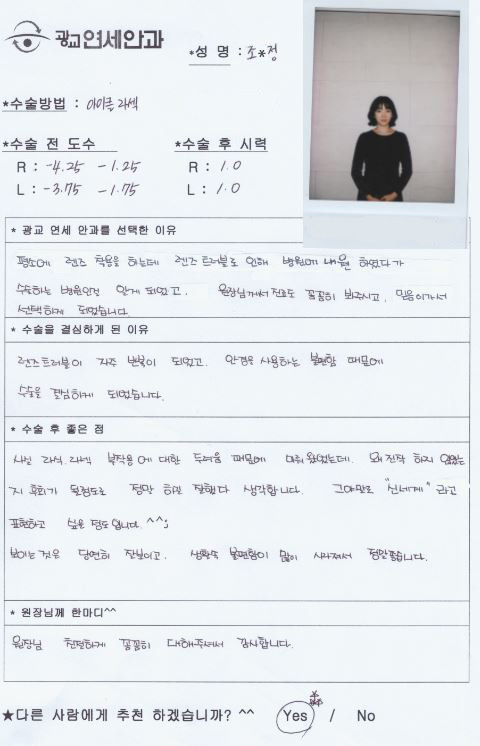 광교연세안과
*성 명 : 조*정
*수술방법 : 아이플 라섹
*수술 전 도수
*수술 후 시력
R : -4.25 -1.25
R : 1.0
L : -3.75 -1.75
L : 1.0
* 광교 연세 안과를 선택한 이유
평소에 렌즈 착용을 하는데 렌즈 트러블로 인해 병원에 내원 하였다가
수술하는 병원인걸 알게 되었고. 원장님께서 진료도 꼼꼼히 봐주시고, 믿음이가서
선택하게 되었습니다
* 수술을 결심하게 된 이유
렌즈트러블이 자주 반복이 되었고. 안경을 사용하는 불편함 때문에
수술을 결심하게 되었습니다.
* 수술 후 좋은 점
사실 라식.라섹 부작용에 대한 두려움 때문에 미뤄 왔었는데. 왜 진작 하지 않았는
지 후회가 될정도로 정말 하길 잘했다 생각합니다. 그야말로 "신세계" 라고
표현하고 싶을 정도 입니다. ^^;
보이는것은 당연히 잘보이고. 생활속 불편함이 많이 사라져서 정말좋습니다.
* 원장님께 한마디^^
원장님 친절하게 꼼꼼히 대해주셔서 감사합니다.
★다른 사람에게 추천 하겠습니까? ^^ Yes / No